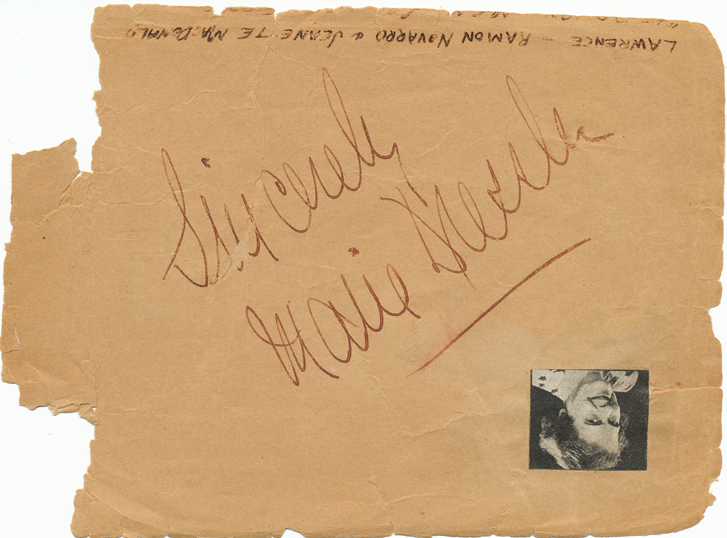 LAWRENCE — RAMON NOVARRO & JEANETTE MACDONALD
Sincerely
Marie Dressler